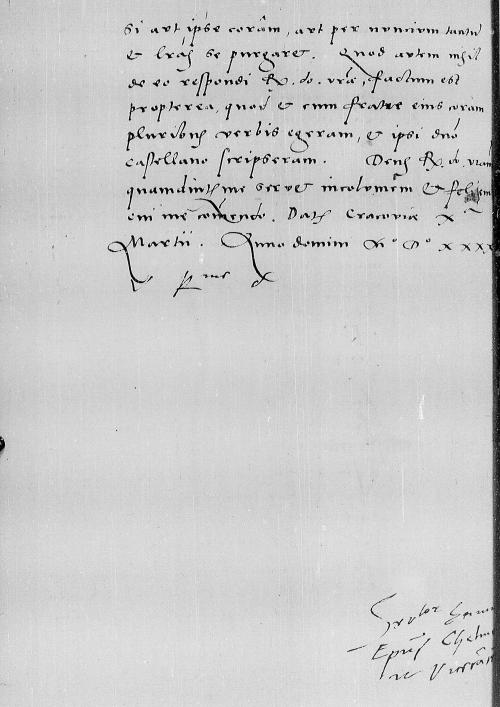 si aut ipse corãm, aut per nuncium tantũ
& lr̃as se purgaret. Quod autem nihil
de eo respondi R. do. vr̃æ, factum est
propterea, quod & cum fratre eius coram
pluribus verbis egeram, & ipsi dño
castellano scripseram. Deus R. do. vram
quamdiutiss me servet incolumem & felicem
cui me comẽndo. Datæ Cracoviæ X
Martii. Anno domini M° D° XXXX
V R me d
Epũs Chelm